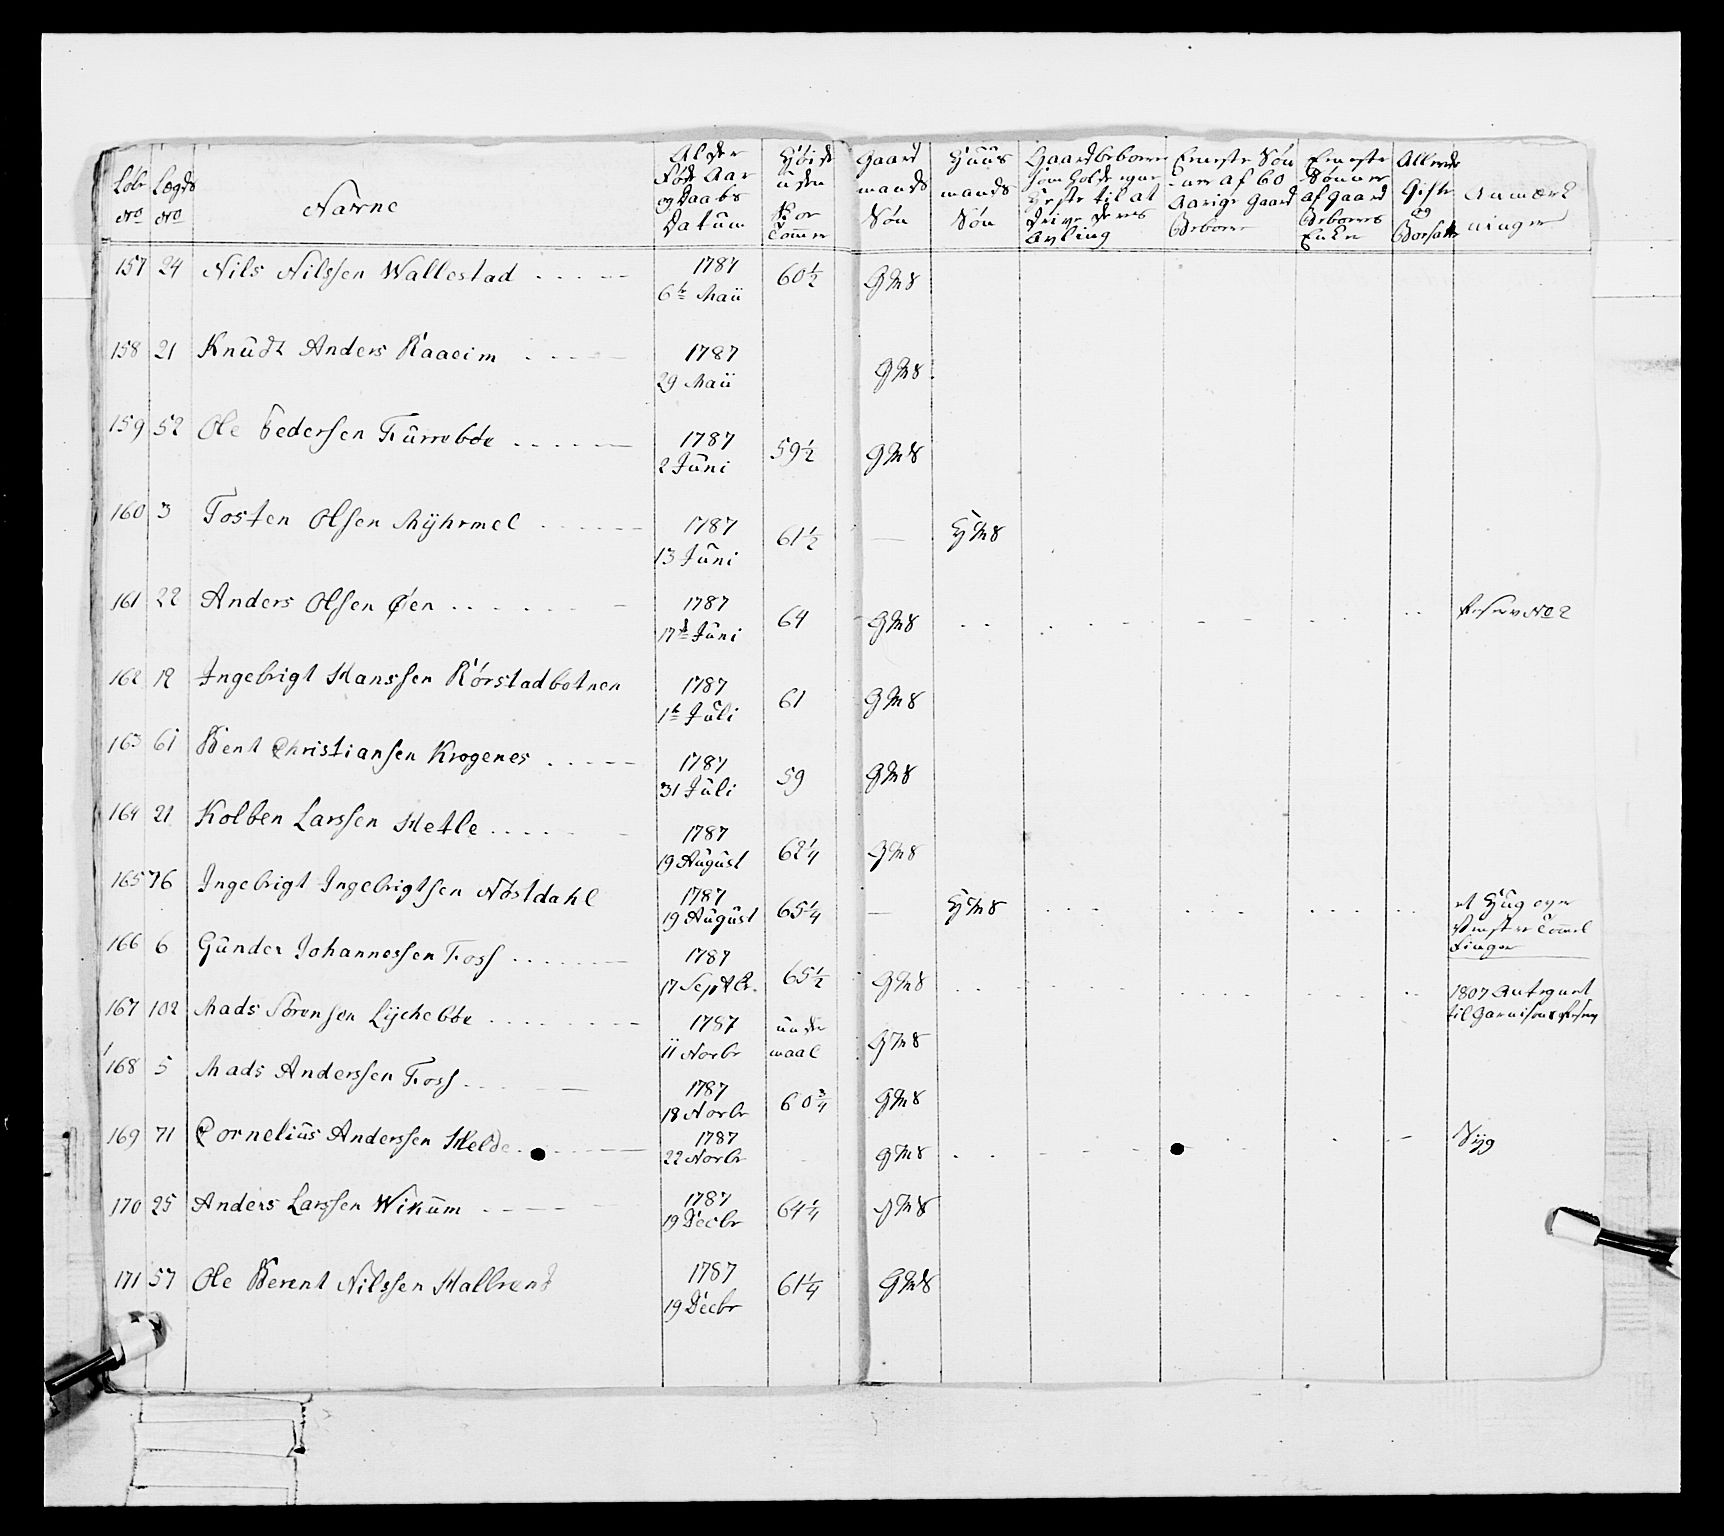 Løb No
Lægds No
Navne
Alder Føde Aar og Daabs Datum
Høide uden
Gaard mands Søn
Huus mands Søn
Gaardbeboere som holde egne Heste til at drive deres Avling
Eeneste Søn af 60 Aarige Gaard Beboere
Eeneste Sønner af Gaard Beboeres Enker
Allerede Gifte og Bosatte
Anmærkninger
157 24 Nils Nilssen Wallestad 1787 6te Maii 60½ GMS
158 21 Knudt Anders Raaeim 1787 29 Maii GMS
159 52 Ole Pedersen Furrebøe 1787 2 Juni 59½ GMS
160 3 Tosten Olsen Myhrmel 1787 13 Juni 61½ — HMS
161 22 Anders Olsen Øen 1787 17de Juni 64 GMS Reserv No 2
162 12 Ingebrigt Hanssen Rørstadbotnen 1787 1te Juli 61 GMS
163 61 Bent Christiansen Krogenes 1787 31 Juli 59 GMS
164 21 Kolben Larssen Hetle 1787 19 August 62¼ GMS
165 76 Ingebrigt Ingebrigtsen Nøstdahl 1787 19 August 65¼ — HMS et Hug over
venstre
Finger
166 6 Gunder Johannessen Foss 1787 17 Septbr. 65½ GMS 1807 Antegnet
til Garnisons
167 102 Mads Sørensen Lychebøe 1787 11 Novbr under maal GMS
168 5 Mads Anderssen Foss 1787 18 Novbr 60¾ GMS
169 71 Cornelius Anderssen Helde 1787 22 Novbr GMS Syg
170 25 Anders Larssen Wikum 1787 19 Decbr 64¼ GMS
171 57 Ole Berent Nilssen Halbrend 1787 19 Decbr 61¼ GMS